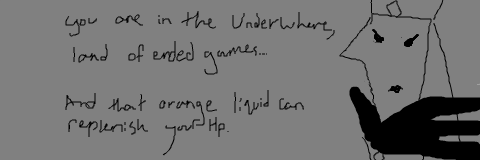 you are in the Underwhere,
land of ended games...
And that orange liquid can
replenish your Hp.